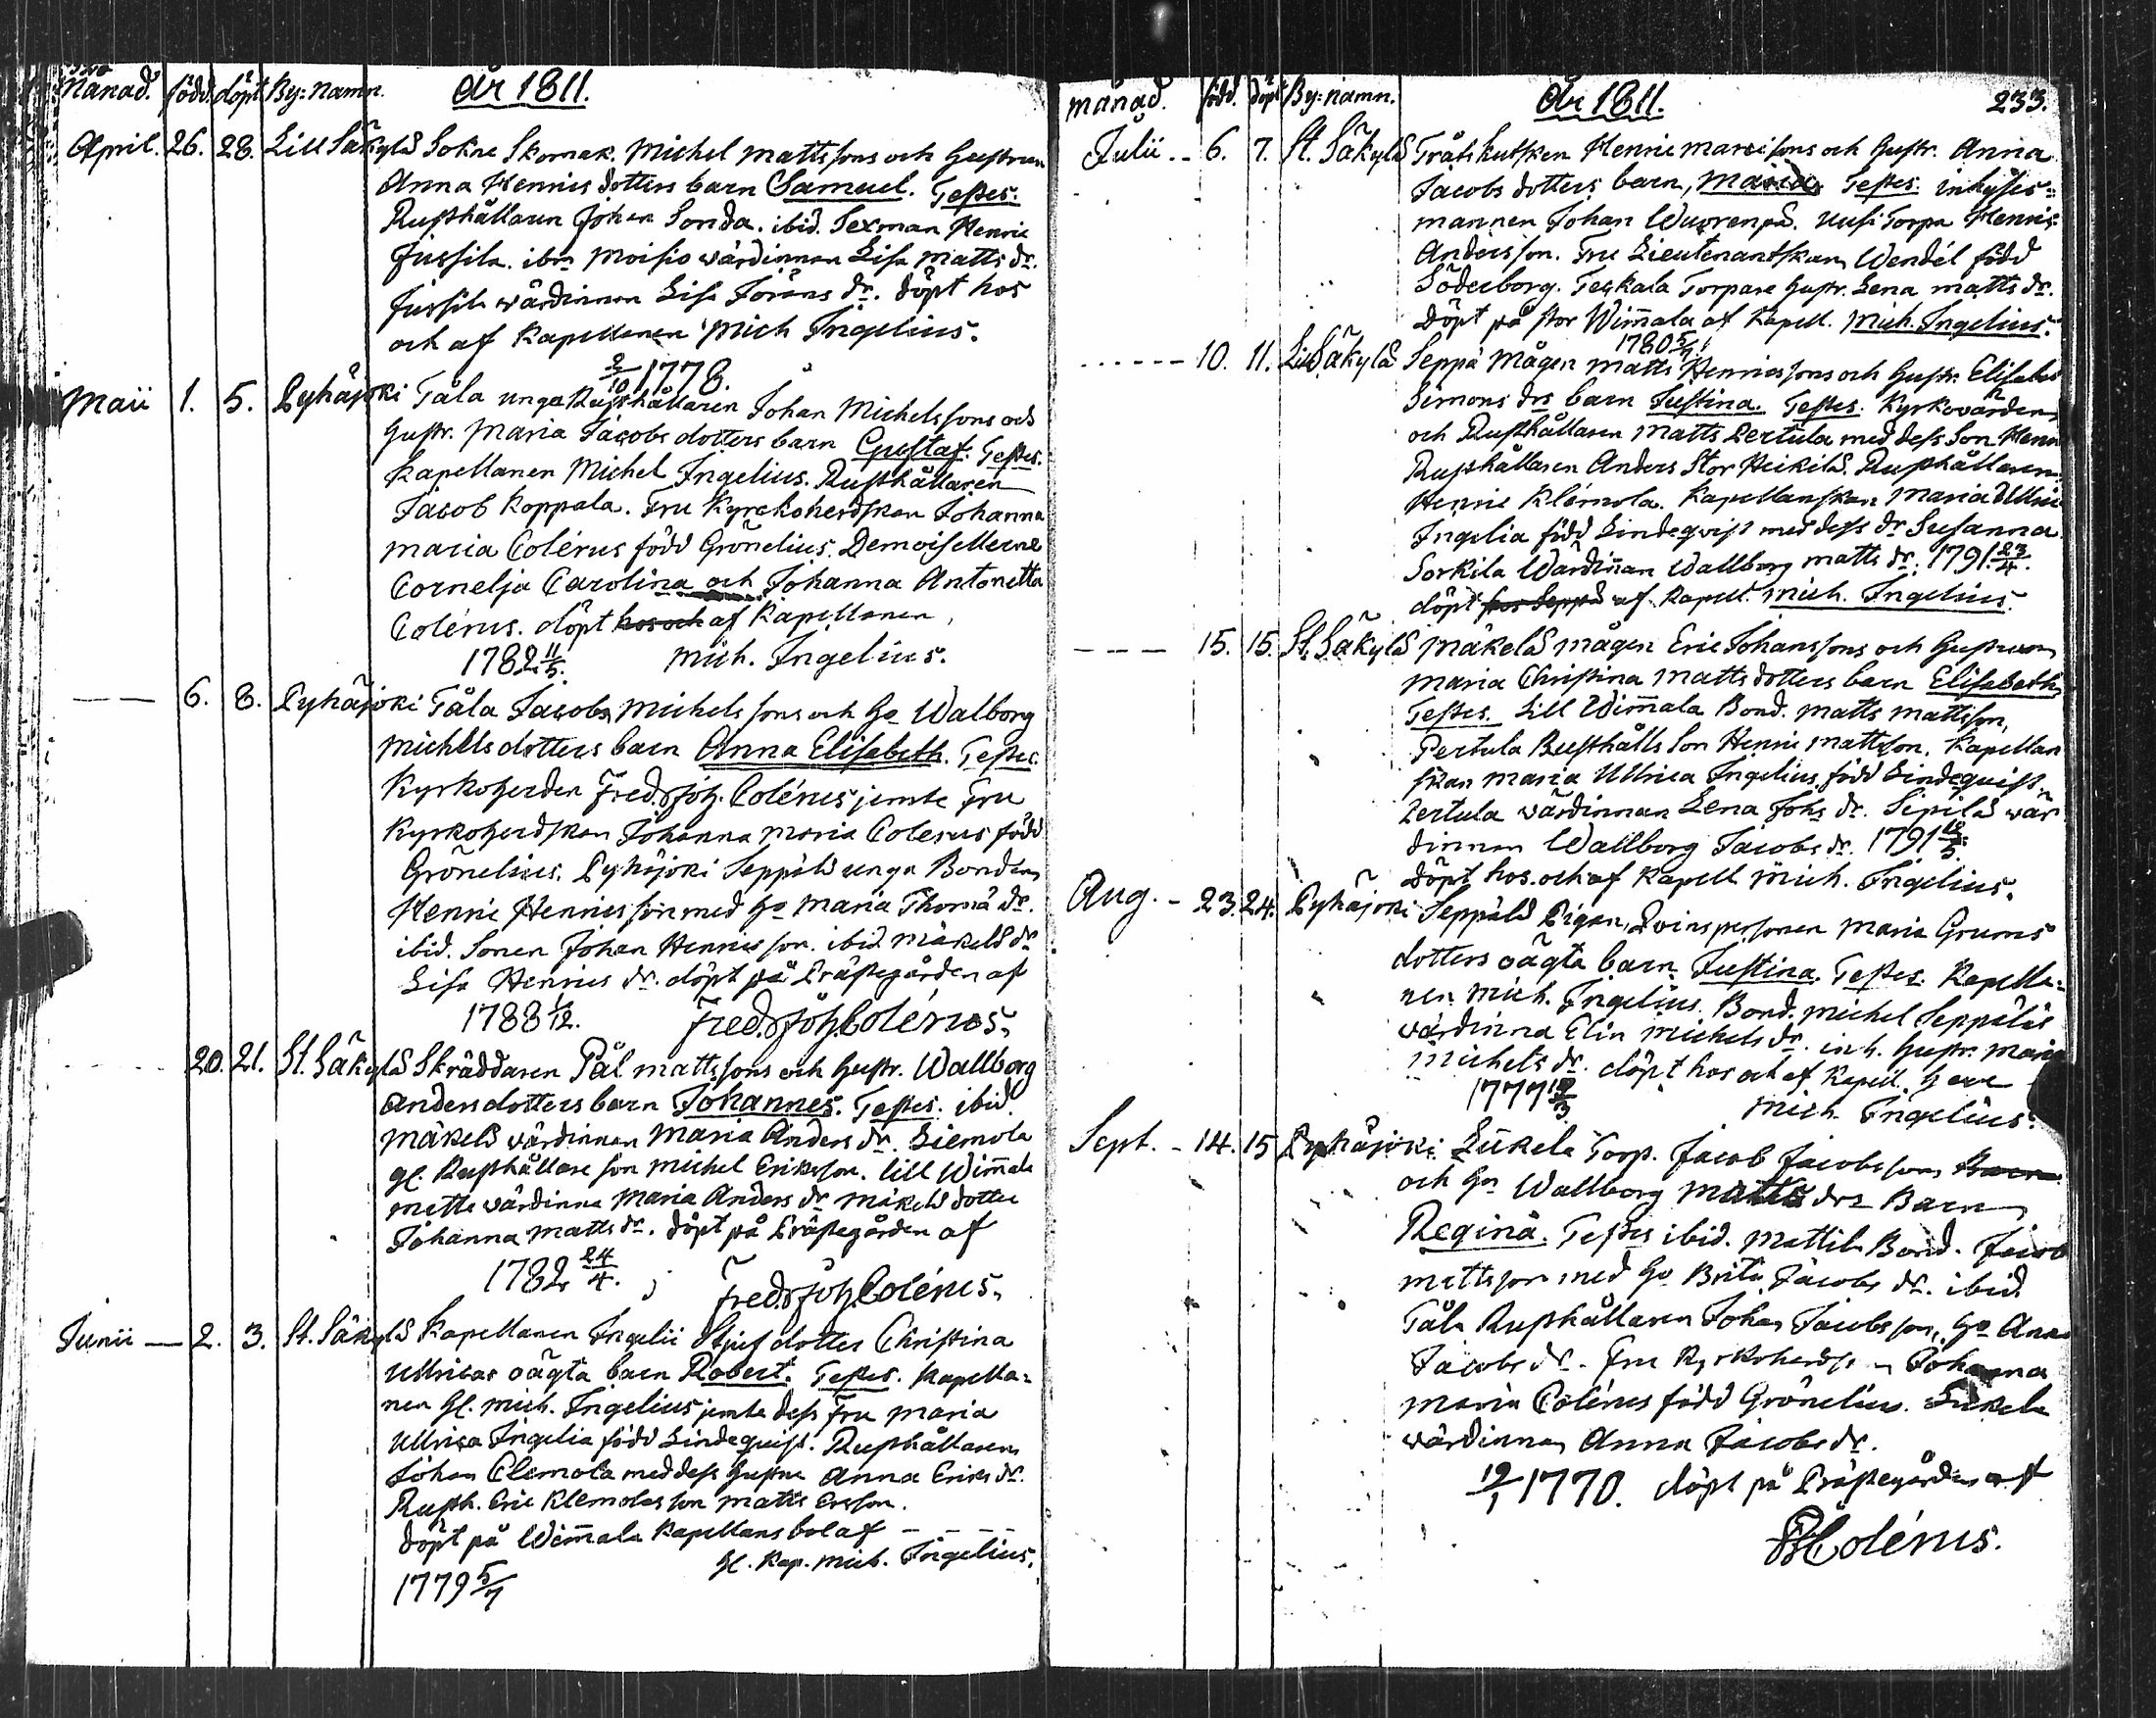 Månad. född. döpt By:namn. År 1811.
April. 26. 28. Lill Säkylä Sokne Skomak. Michel Mattssons och Hustrun
Anna Henrics dotters barn Samuel. Testes.
Rusthållaren Johan Sonda. ibid. Sexman Henric
Jussila. ibm Moisio wärdinnan Lisa Matts dr.
Jussila wärdinnan Lisa Jörans dr. döpt hos
och af Kapellanen Mich Ingelius.
2/10 1778.
Maii 1. 5. Pyhäjoki Tåla unga Rusthållaren Johan Michelssons och
Hustr. Maria Jacobs dotters barn Gustaf. Testes.
Kapellanen Michel Ingelius. Rusthållaren
Jacob Koppala. Fru Kyrckoherdskan Johanna
Maria Colérus född Grönelius. Demoisellerne
Cornelja Carolina och Johanna Antonetta
Colérus. döpt hos och af Kapellanen,
1782 11/5. Mich. Ingelius.
— — 6. 8. Pyhäjoki Tåla Jacobs Michels sons och Ho Walborg
Michells dotters barn Anna Elisabeth. Testes.
Kyrkoherden Fred. Joh. Colérus jemte Fru
Kyrkoherdskan Johanna Maria Colerus född
Grönelius. Pyhäjoki Seppälä unga Bonden
Henric Henricsson med Ho Maria Thomæ dr.
ibid. Sonen Johan Henricsson. ibid Mäkelä dr
Lisa Henrics dr. döpt på Prästegården af
1788 1/12. Fred. Joh. Colérus.
20. 21. St. Säkylä Skräddaren Pål Mattssons och Hustr. Wallborg
Anders dotters barn Johannes. Testes. ibid.
Mäkelä wärdinnan Maria Anders dr. Liemola
gl. Rusthållare son Michel Ericksson. lill Wim̄ala
matts wärdinna Maria Anders dr Mäkelä dotter
Johanna Matts dr. döpt på Prästegården af
1782 24/4. Fred. Joh. Colérus.
Junii — 2. 3. St. Säkylä Kapellanen Ingelii Stjuf dotter Christina
Ullricas oägta barn Robert. Testes. Kapella=
nen Hl. Mich. Ingelius jemte dess Fru Maria
Ullrica Ingelia född Lindequist. Rusthållaren
Johan Clemola med dess Hustru Anna Erics dr.
Rusth. Eric Klemolas son Matts Ersson.
döpt på Wim̄ala Kapellans bol af — — — —
Hl. Kap. Mich. Ingelius.
1779 5/7
Månad. född. döpt By:namn. År 1811. 233.
Julii - - 6. 7. St. Säkylä Tråts kusken Henric Marcissons och Hustr. Anna
Jacobs dotters barn, Maria. Testes. inhyses=
mannen Johan Wuorenpä. Uusi Torpa Henric
Andersson. Fru Lieutenantskan Wendél född
Söderborg. Teskala Torpare Hustr. Lena Matts dr.
döpt på stor Wim̄ala af Kapell. Mich. Ingelius.
1780 5/7
- - - - - 10. 11. Lill Säkylä Seppä Mågen Matts Henricssons och Hustr. Elisabet
Simons drs barn Justina. Testes. Kyrkovärden
och Rusthållaren Matts Pertula med dess Son Henric
Rusthållaren Anders Stor Heikilä. Rusthållaren
Henric Klémola. Kapellanskan Maria Ullrica
Ingelia född Lindequist med dess dr Susanna
Sorkila Wärdin̄an Wallborg Matts dr. 1791 23/4.
döpt hos Seppä af Kapell. Mich. Ingelius.
- - - 15. 15. St. Säkylä Mäkelä mågen Eric Johanssons och Hustrun
Maria Christina Mattsdotters barn Elisabeth
Testes. Lill Wim̄ala Bond. Matts Mattsson,
Pertula Rusthålls Son Henric Mattsson, Kapellan
skan Maria Ullrica Ingelius född Lindequist.
Pertula wärdinnan Lena Johs dr. Sipilä wär
dinnan Wallborg Jacobs dr. 1791 10/5.
döpt hos och af Kapell Mich. Ingelius.
Aug. - 23. 24. Pyhäjoki Seppälä Pigan, Qvinspersonen Maria Grums
dotters oägta barn Justina. Testes. Kapella=
nen Mich. Ingelius. Bond. Michel Seppäläs
wärdinna Elin Michels dr. inh. Hustr. Maria
Michels dr. döpt hos och af Kapell. Herr
Mich. Ingelius.
Sept. - 14. 15 Pyhäjoki Torp. Jacob Jacobssons Barn
och Ho Wallborg Matts drs Barn
Regina. Testes ibid. Mattila Bond. Jacob
Mattsson med Ho Brita Jacobs dr. ibid.
Tåla Rusthållaren Johan Jacobsson, Ho Anna
Jacobs dr. Fru Kyrkoherdsk Johanna
Maria Colérus född Grönelius.
wärdinnan Anna Jacobs dr.
19/1 1770. döpt på Prästegården af
FJColérus.